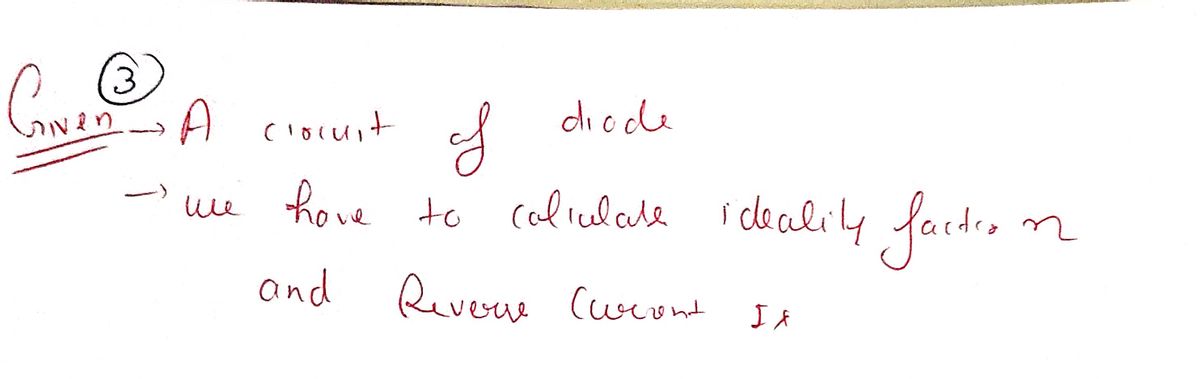 ③
Given → A circuit of diode
→ we have to calculate ideality factor n
and Reverse Current Is